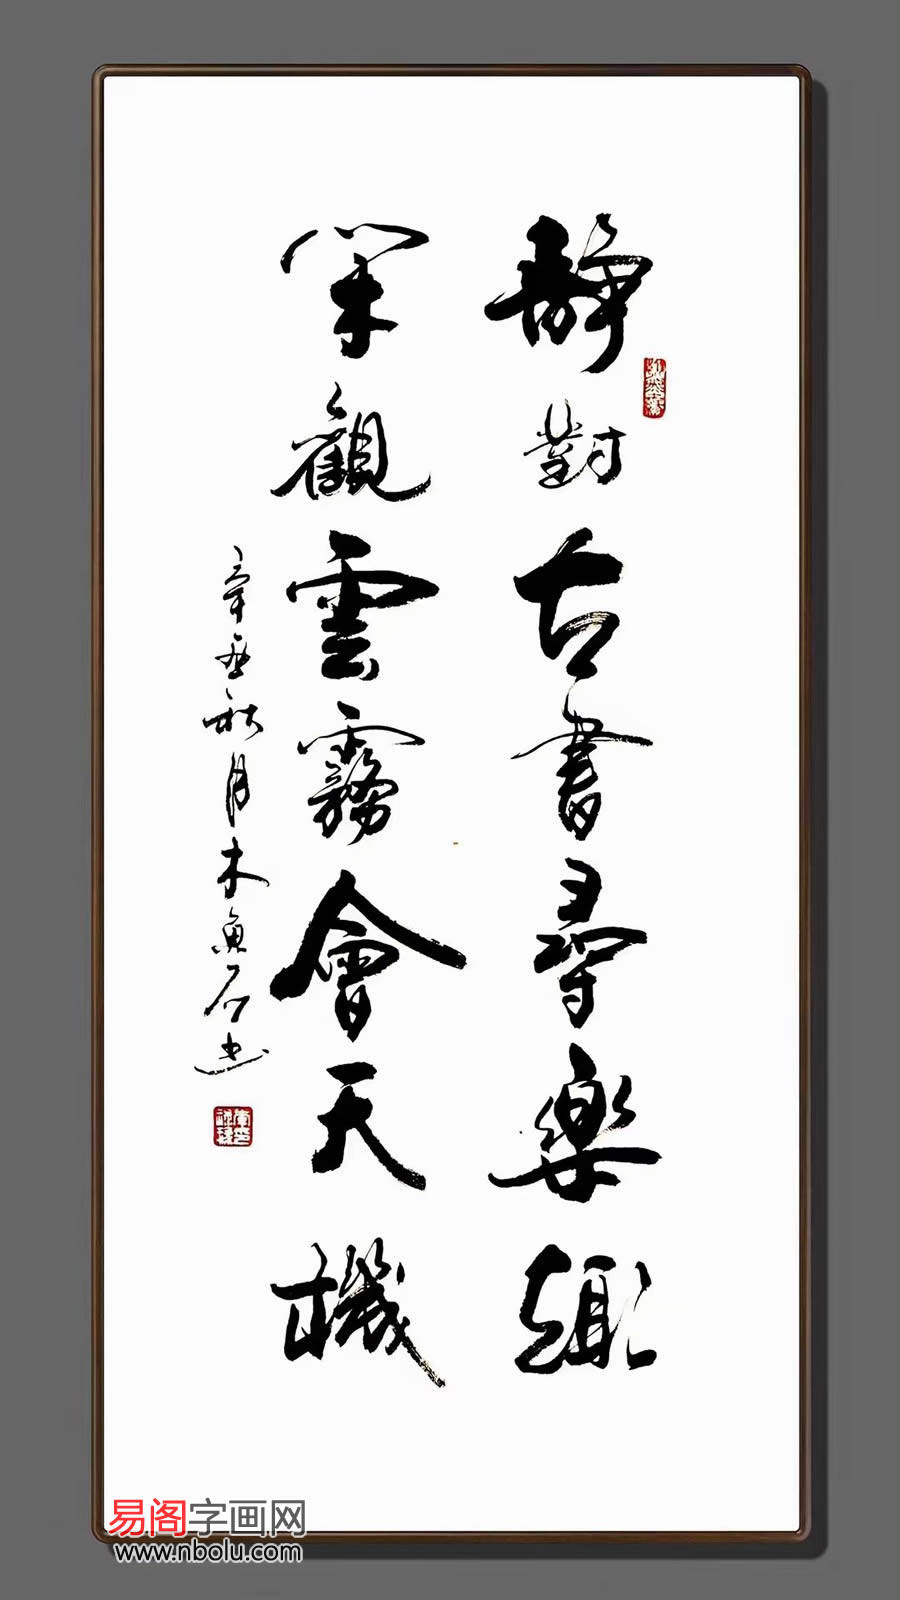 靜對古書尋樂趣
閑觀雲霧會天機
辛丑秋月木魚石書
易阁字画网
www.nbolu.com